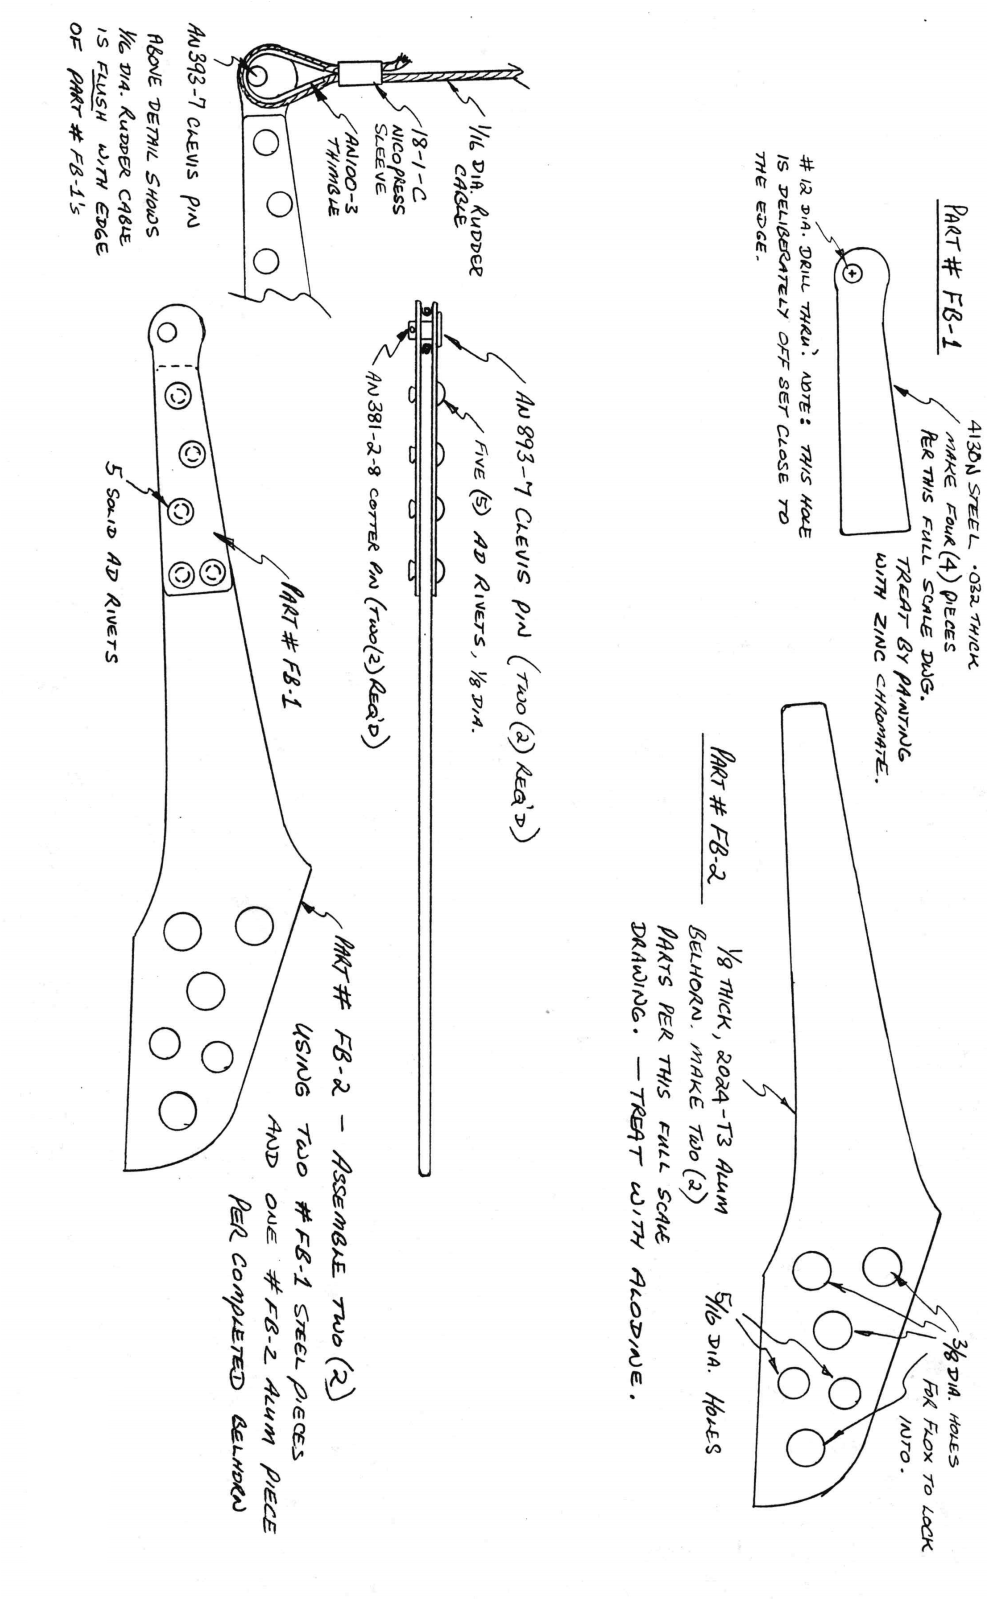 PART # FB-1
4130N STEEL .032 THICK
MAKE FOUR (4) PIECES
PER THIS FULL SCALE DWG.
TREAT BY PAINTING
WITH ZINC CHROMATE.
# 12 DIA. DRILL THRU. NOTE: THIS HOLE
IS DELIBERATELY OFF SET CLOSE TO
THE EDGE.
PART # FB-2
1/8 THICK, 2024-T3 ALUM
BELHORN. MAKE TWO (2)
PARTS PER THIS FULL SCALE
DRAWING. — TREAT WITH ALODINE.
3/8 DIA. HOLES
FOR FLOX TO LOCK
INTO.
5/16 DIA. HOLES
1/16 DIA. RUDDER
CABLE
18-1-C
NICOPRESS
SLEEVE
AN100-3
THIMBLE
AN393-7 CLEVIS PIN
ABOVE DETAIL SHOWS
1/16 DIA. RUDDER CABLE
IS FLUSH WITH EDGE
OF PART # FB-1'S
AN893-7 CLEVIS PIN (TWO (2) REQ'D)
FIVE (5) AD RIVETS, 1/8 DIA.
AN381-2-8 COTTER PIN (TWO (2) REQ'D)
PART # FB-1
5 SOLID AD RIVETS
PART # FB-2 — ASSEMBLE TWO (2)
USING TWO # FB-1 STEEL PIECES
AND ONE # FB-2 ALUM PIECE
PER COMPLETED BELHORN